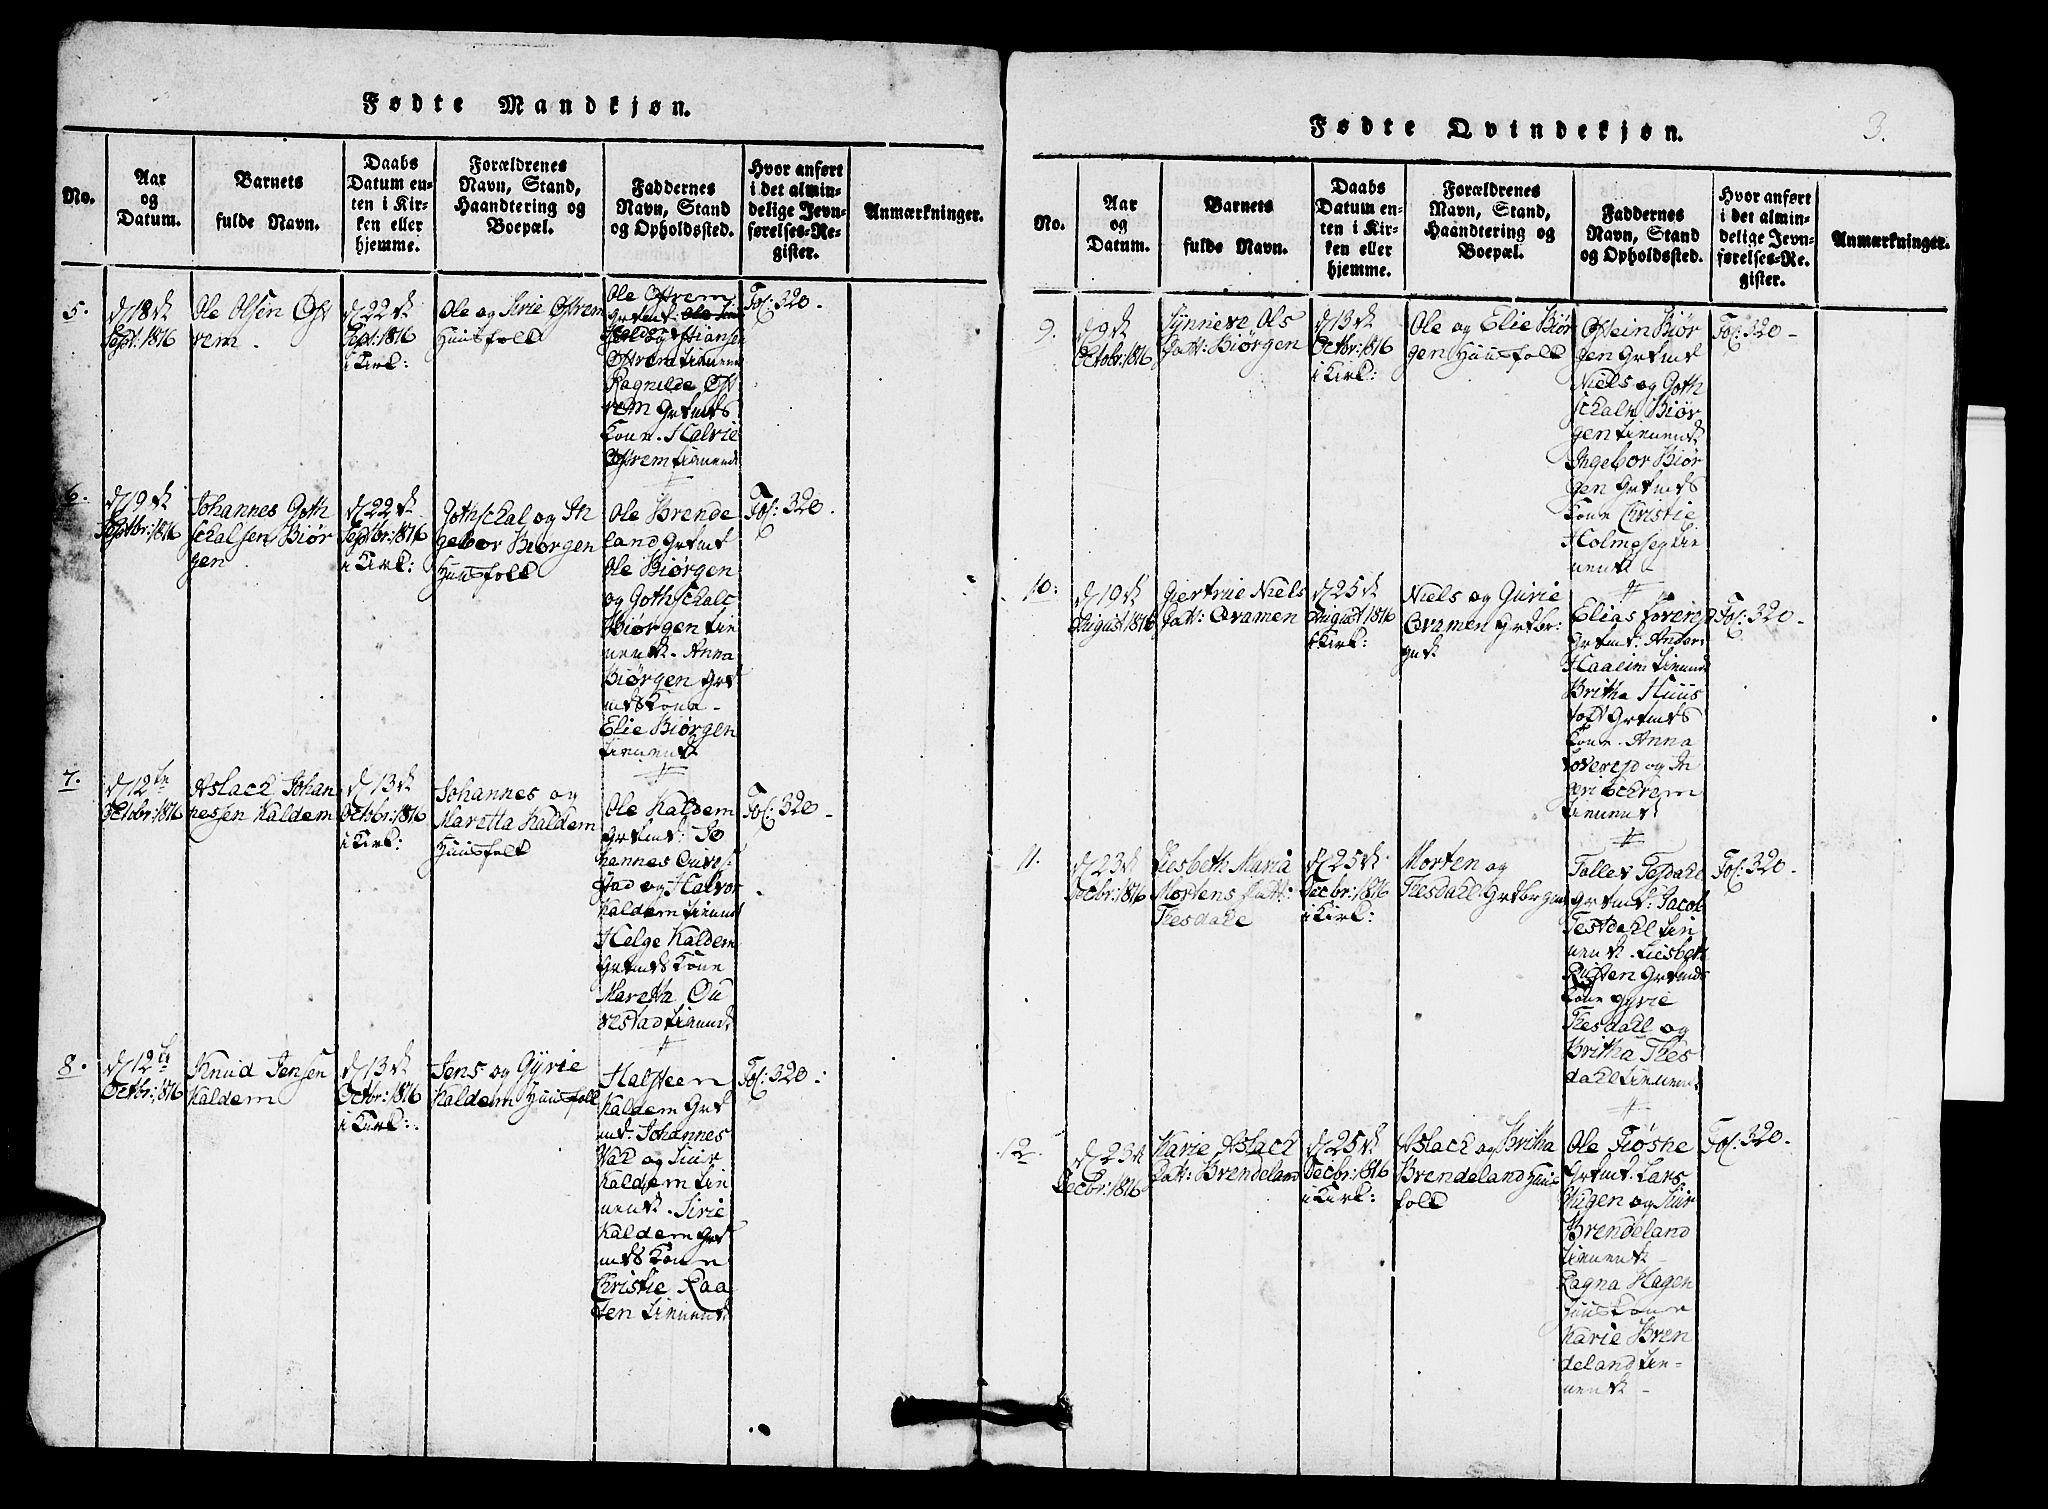 Fødte Mandkjøn.
No.
Aar
og
Datum.
Barnets
fulde Navn.
Daabs
Datum en-
ten i Kir-
ken eller
hjemme.
Forældrenes
Navn, Stand,
Haandtering og
Boepæl.
Faddernes
Navn, Stand
og Opholdssted.
Hvor anført
i det almin-
delige Jevn-
førelses-Re-
gister.
Anmærkninger.
5.
d 18 d
Sept: 1816
Ole Olsen Øst
rem
d 22 d
Sept: 1816
i Kirk:
Ole og Sirie Østrem
Huusfolk
Ole Østrem
Grdmd:
Østrem
Ragnilde Øst
rem Grdmds
Kone. Halvie
Østrem
Fol: 320.
6.
d 19 d
Septbr: 1816
Johannes Goth
schalsen Biør
gen
d 22 d
Septbr: 1816
i Kirk:
Gothschal og In
gebor Biørgen
Huusfolk
Ole Brende
land Grdmd
Ole Biørgen
og Gothschalc
Biørgen
Anna
Biørgen Grd
mds Kone
Elie Biørgen
Fol: 320.
7.
d 12te
Octobr: 1816
Aslack Johan
nessen Kaldem
d 13 d
Octobr: 1816
i Kirk:
Johannes og
Maretta Kaldem
Huusfolk
Ole Kaldem
Grdmd: Jo
hannes Oures
stad og Halvor
Kaldem
Helge Kaldem
Grdmds Kone
Maretta Ou
restad
Fol: 320
8.
d 12te
Octbr: 1816
Knud Jensen
Kaldem
d 13 d
Octbr: 1816
i Kirk:
Jens og Gÿrie
Kaldem Huusfolk
Halsteen
Kaldem Grd
md: Johannes
og
Kaldem
Sirie
Kaldem Grd
mds Kone
Christie Raa
Fol: 320.
Fødte Qvindekjøn.
3.
No.
Aar
og
Datum.
Barnets
fulde Navn.
Daabs
Datum en-
ten i Kir-
ken eller
hjemme.
Forældrenes
Navn, Stand,
Haandtering og
Boepæl.
Faddernes
Navn, Stand
og Opholdssted.
Hvor anført
i det almin-
delige Jevn-
førelses-Re-
gister.
Anmærkninger.
9.
d 9 d
Octobr: 1816
Sÿnneve Ols
Datt: Biørgen
d 13 d
Octbr: 1816
i Kirk:
Ole og Elie Biør
gen Huusfolk
Østein Biør
gen Grdmd
Niels og Goth
schalk Biør
gen
Ingebor Biør
gen Grdmds
Kone Christie
Holmeseg
Fol: 320
10:
d 10 d
August 1816
Giertrue Niels
Datt: Qvamen
d 25 d
August 1816
i Kirk:
Niels og Gurie
Qvamen Grdbr:
Elias
Grdmd:
Haaeim
Britha Huus
Grdmds
Kone. Anna
og In
Fol: 320.
11.
d 23 d
Decbr: 1816
Liesbeth Maria
Mortens Datt:
Tiesdale
d 25 d
Decbr: 1816
i Kirk:
Morten og
Tiesdahl
Tolles Tesdahl
Grdmd: Jacob
Testdahl
Liesbeth
Grdmds
Kone Gyrie
Tiesdahl og
Britha Ties
dahl
Fol: 320.
12.
d 23 d
Decbr: 1816
Karie Aslack
Datt: Brendeland
d 25 d
Decbr: 1816
i Kirk:
Aslack og Britha
Brendeland Huus
folk
Ole Fiøshe
Grdmd: Lars
Hagen og Siur
Brendeland
Ragna Hagen
Huuskone
Karie Bren
deland
Fol: 320.